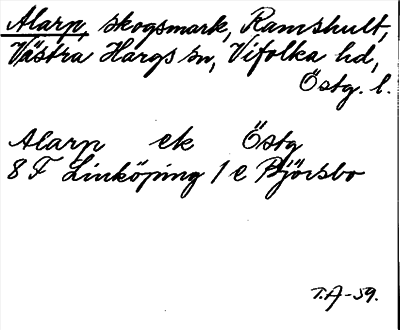 Alarp, skogsmark, Ramshult,
Västra Hargs sn, Vifolka hd,
Östg. l.
Alarp ek Östg
8 F Linköping 1 e Björsbo
T.A-59.